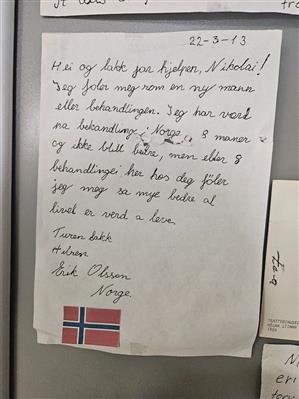 22-3-13
Hei og takk for hjelpen, Nikolai!
Jeg føler meg som en ny mann
etter behandlingen. Jeg har vært
på behandling i Norge 8 måner
og ikke blitt bedre, men etter 8
behandlingei her hos deg føler
jeg meg så mye bedre at
livet er verd a leve.
Tusen takk
Hilsen
Erik Olsson
Norge.